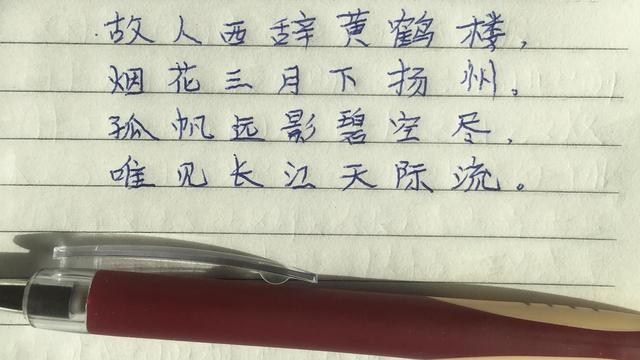 故人西辞黄鹤楼,
烟花三月下扬州。
孤帆远影碧空尽,
唯见长江天际流。